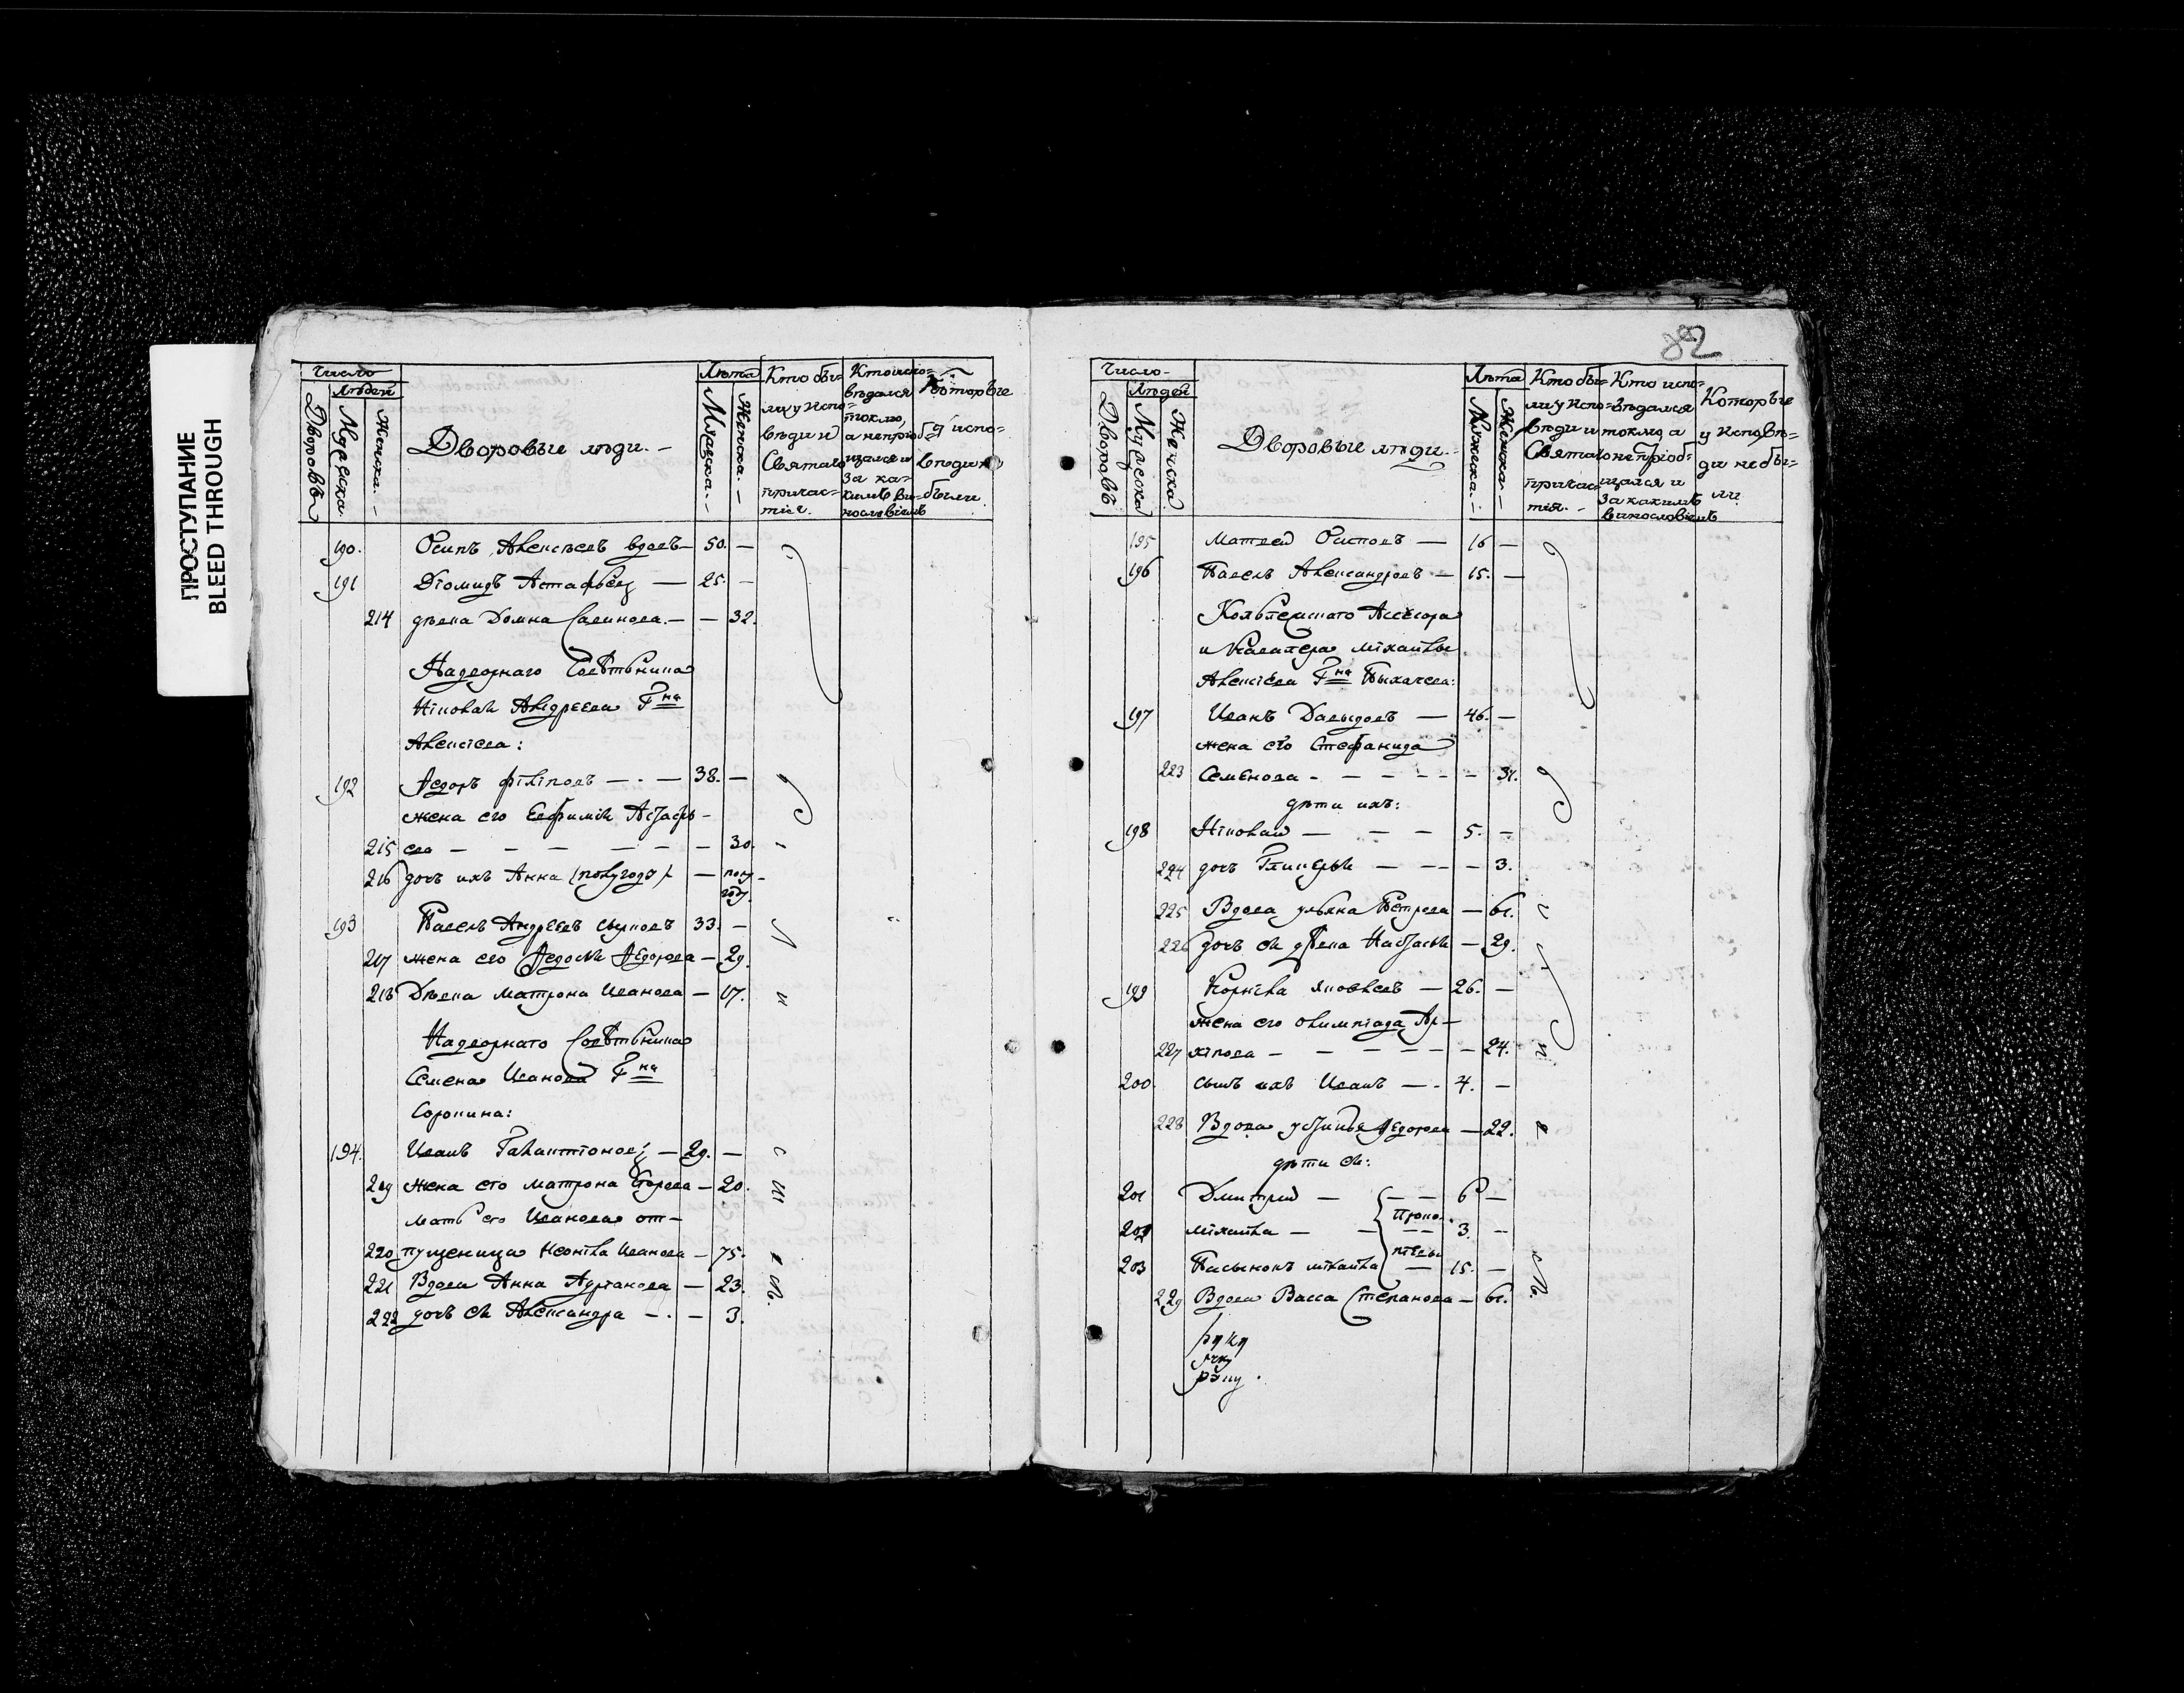 ПРОСТУПАНИЕ
BLEED THROUGH
Число
Людей
Дворовъ
Мужеска
Женска
Дворовые люди.
Лѣта
Мужеска
Женска
Кто бы-
ли у испо-
вѣди и
Святаго
причас-
тія.
Кто испо-
вѣдался
токмо,
а непріоб-
щался и
за ка-
кимъ ви-
нословіемъ
Которые
у испо-
были
190. Осипъ Алексѣевъ вдовъ — 50. —
191 Діомидъ Астафьевъ — 25. —
214 дѣвка Домна Савинова. — — 32.
Надворнаго Совѣтника
Николая Андреева Гна
Алексіева:
192 Ѳедоръ Філіповъ — · — 38. —
жена его Евфимія Астафь-
215 ева — — — — — — 30.
216 дочь ихъ Анна /полугоду/ — полу-
году.
193 Павелъ Андреевъ 33. —
217 жена его Ѳедосія Ѳедорова — 29.
218 Дѣвка Матрона Иванова — 17.
Надворнаго Совѣтника
Семена Иванова Гна
Сорокина:
194. Иванъ Галактіоновъ — 29. —
219 жена его Матрона Егорова — 20.
мать его Иванова от-
220 пущеница Неонила Иванова — 75.
221 Вдова Анна Адріанова — 23.
222 дочь ея Александра — · — 3.
82
Число
Людей
Дворовъ
Мужеска
Женска
Дворовые люди.
Лѣта
Мужеска
Женска
Кто бы-
ли у испо-
вѣди и
Святаго
причас-
тія.
Кто испо-
вѣдался
токмо, а
непріоб-
щался и
за какимъ
винословіемъ
Которые
у исповѣ-
ди не бы-
ли
195 Матвей Осиповъ — 16 —
196 Павелъ Александровъ — 15. —
Ассесора
и Кавалера Михайлы
Алексіева Гна
197 Иванъ Давыдовъ — 46. —
жена его Стефанида
223 Семенова - — — — — — 31.
дѣти ихъ:
198 Николай — — — 5. —
224 дочь Гликерія — — — — 3.
225 Вдова Ульяна Петрова — 61.
226 дочь ея дѣвка Настасія — 29.
199 Корнила Яковлевъ — 26. —
жена его Олимпіада Ар-
227 хіпова — — — — — — 24.
200. сынъ ихъ Иванъ — - 4. —
228 Вдова Устинья Ѳедорова — 22.
дѣти ея:
201 Дмитрей — — — 6 —
202 Михайла — — — — 3. —
203 Пасынокъ Михайла — 15. —
229 Вдова Васса Степанова — 61.